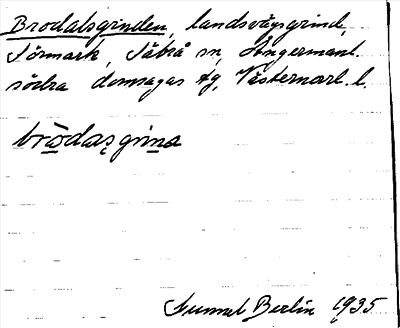 Brodalsgrinden, landsvägsgrind,
Sörmark, Säbrå sn, Ångermanl.
södra domsagas tg, Västernorrl. l.
brodasgrina
Gunnel Berlin 1935